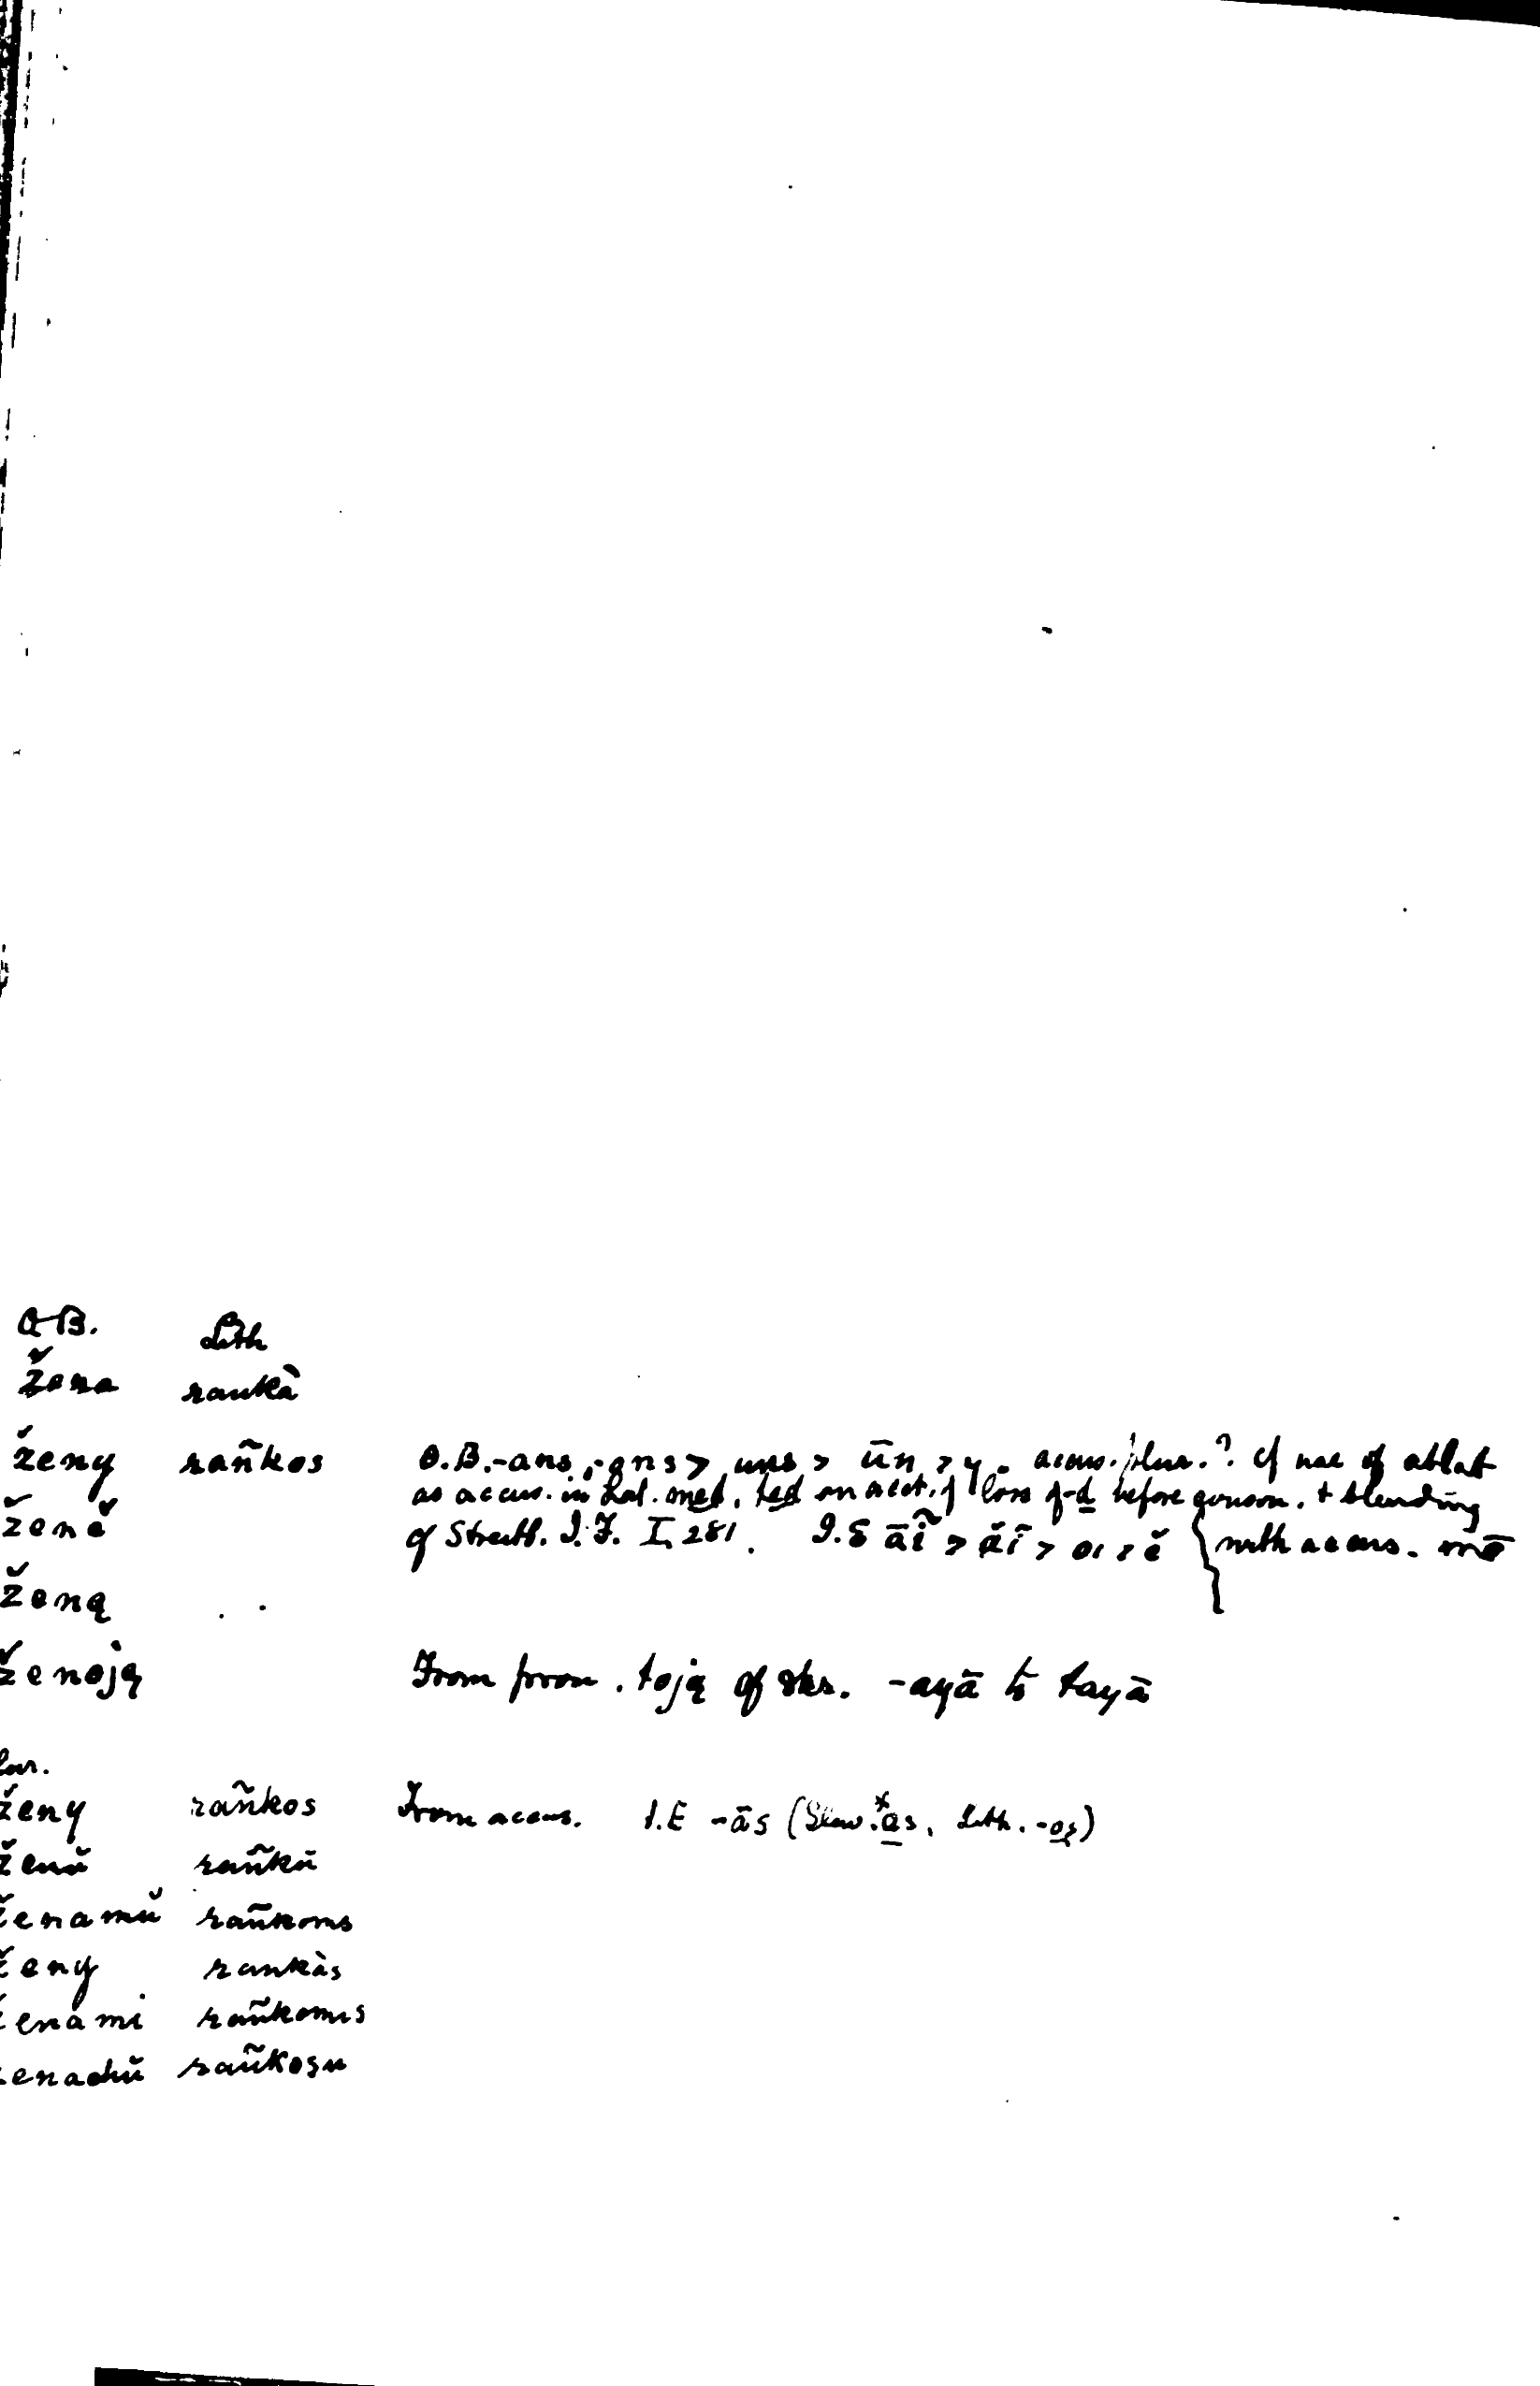 O.B. Lith
žena rankà
ženy rañkos O.B. -ans, -ons > uns > ūn > y. accus. plur.? cf use of ablat
as accus. in Lat. med, ted on acct. of loss of -d before conson. + blending
ženě cf Streitb. I.F. I, 281. I.E āĩ > ăĩ > oi > ě with accus. mē
ženą
ženoją From pron. toją cf skr. -ayā to tayā
lur.
ženy rañkos From accus. I.E -ās (Slav. *as, Lith. -os)
ženŭ rañkū
ženamŭ rañkoms
ženy rankàs
enami rañkomis
enachŭ rañkosu